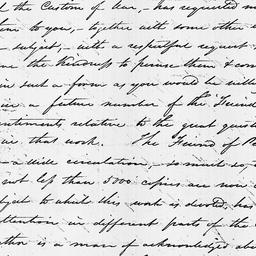 the Custom of War, - has requested m
to you, - together with some other
- subject, - with a respectful request
the kindness to peruse them & com
in such a form as you would be will
in a future number of the Friend
sentiments relative to the great ques
in that work. The Friend of Pe
a wide circulation, - so much so,
not less than 5000 copies are now
subject to which this work is devoted, has
attention in different parts of the
author is a man of acknowledged ab